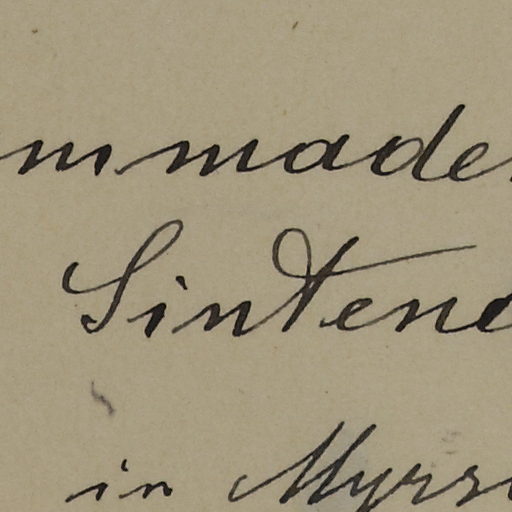 mmade
Sintene
in Myrs